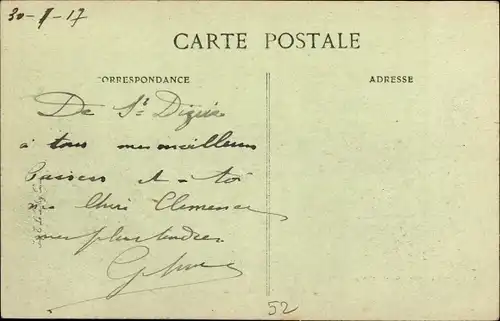 30-1-17
CARTE POSTALE
CORRESPONDANCE
ADRESSE
De St Dizier
à tous mes meilleurs
baisers et à toi
ma Chère Clemence
mes plus tendres
52